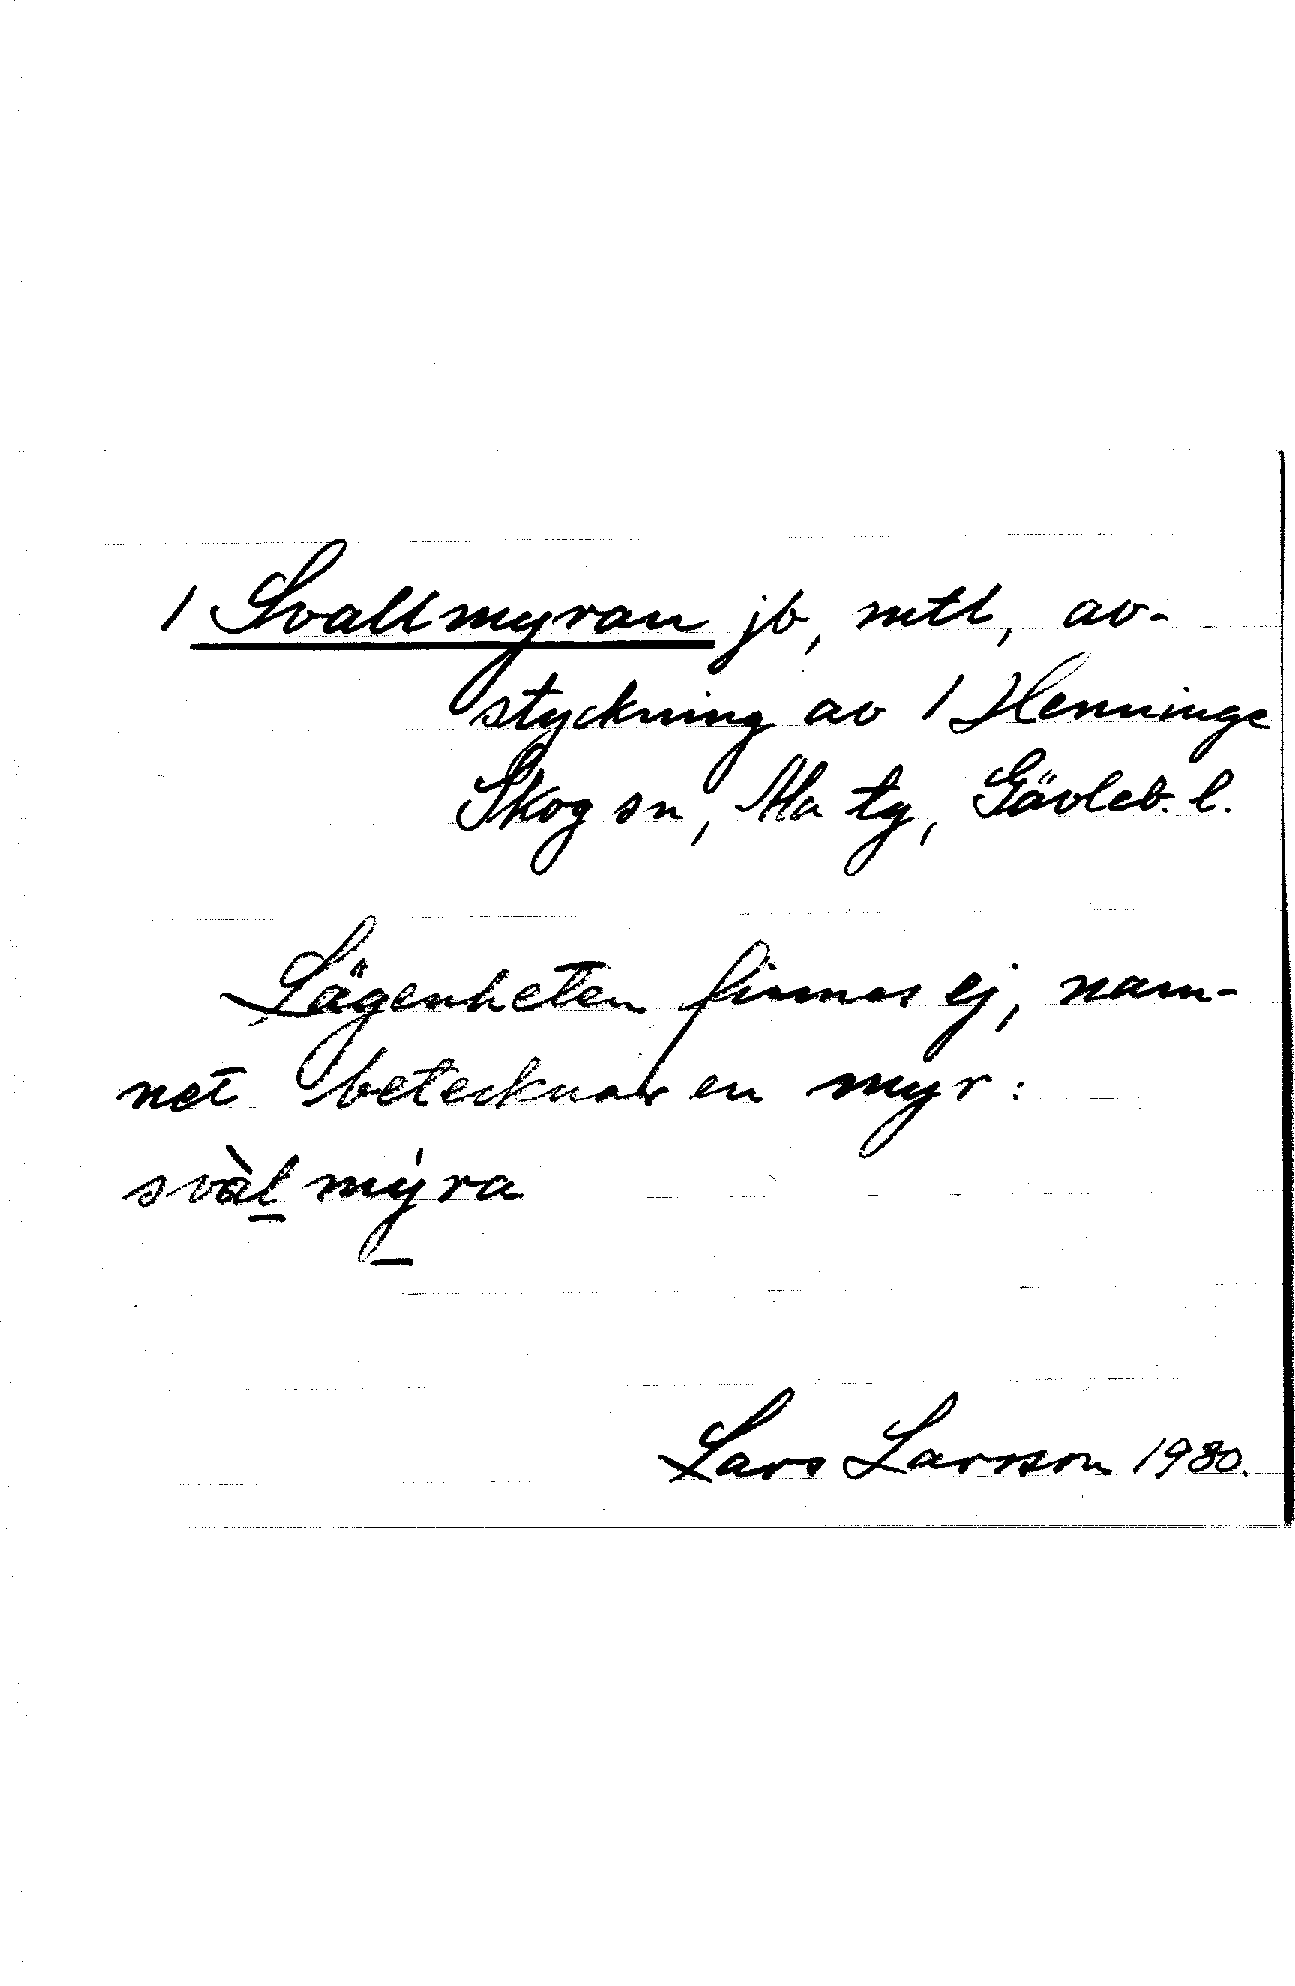 1 Svallmyran jb, mtl, av-
styckning av 1 Henninge
Skog sn, Ma tg, Gävleb. l.
Lägenheten finnes ej, nam-
net betecknar en myr:
svàl mýra
Lars Larsson 1980.